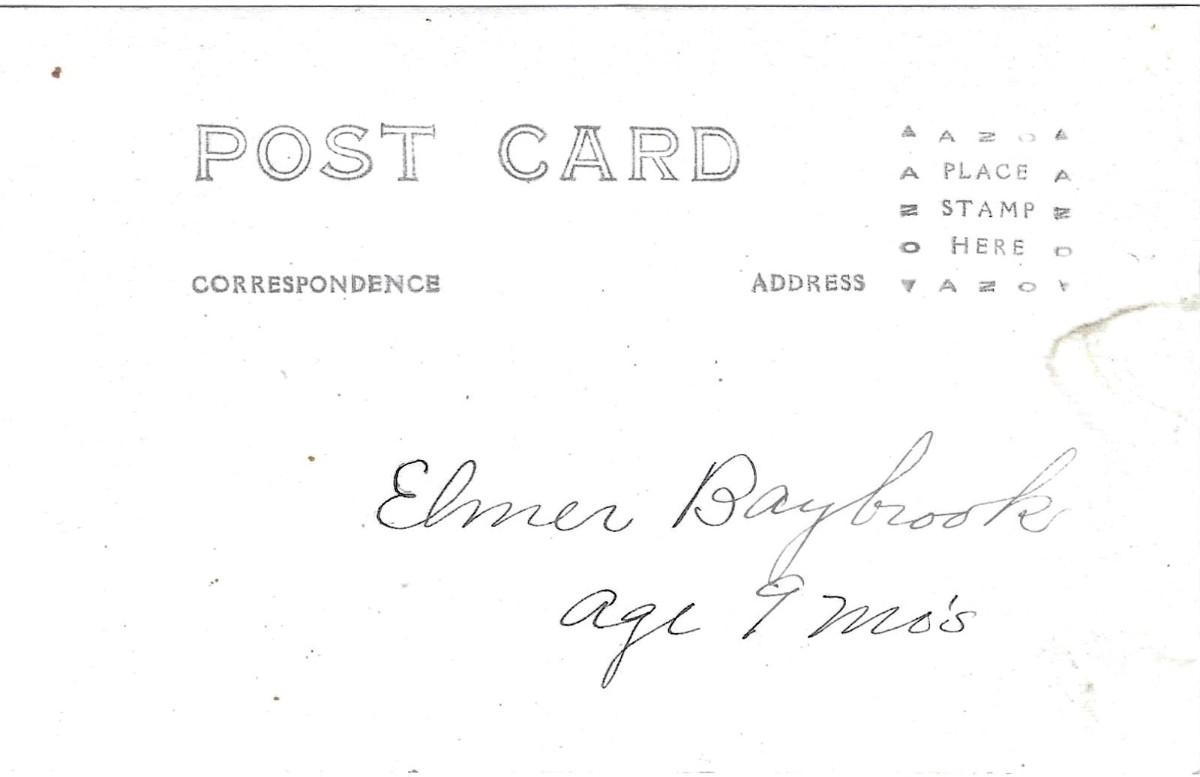 POST CARD
▲ A Z O ▲
A PLACE A
Z STAMP Z
O HERE O
CORRESPONDENCE
ADDRESS
▼ A Z O ▼
Elmer Baybrook
age 9 mo's